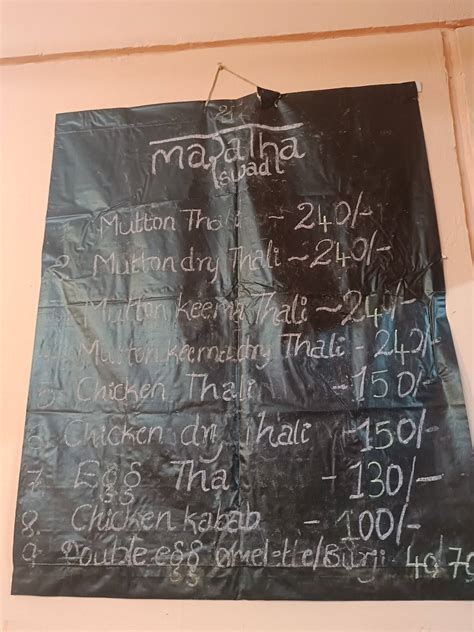 maratha
swad
Mutton Thali - 240/-
2. Mutton dry Thali ~ 240/-
Mutton keema Thali ~ 240/-
Mutton keema dry Thali - 240/-
5. Chicken Thali - 150/-
6. Chicken dry Thali - 150/-
7. Egg Tha - 130/-
8. Chicken kabab - 100/-
9. Double egg omel-tte/Burji 40/70